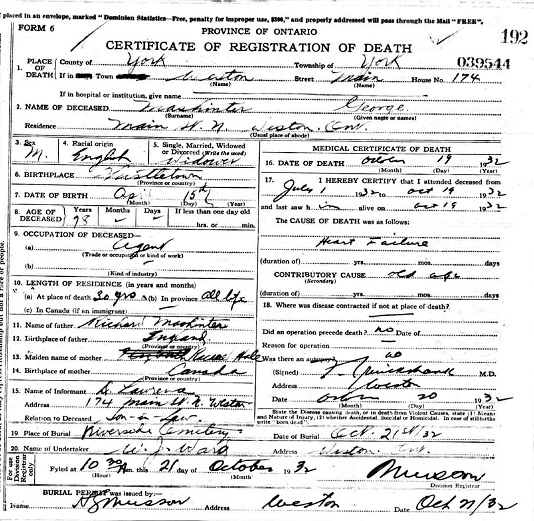 placed in an envelope, marked "Dominion Statistics—Free, penalty for improper use, $300," and properly addressed will pass through the Mail "FREE".
FORM 6
PROVINCE OF ONTARIO
192
CERTIFICATE OF REGISTRATION OF DEATH
039544
1. PLACE OF DEATH
County of York
Township of York
If in Town Weston Street Main House No. 174
(Name) (Name)
If in hospital or institution, give name
2. NAME OF DECEASED Mashinter George
(Surname) (Given name or names)
Residence Main St. N. Weston Ont.
(Usual place of abode)
3. Sex M.
4. Racial origin English
5. Single, Married, Widowed or Divorced (Write the word) Widower
6. BIRTHPLACE Thistletown
(Province or country)
7. DATE OF BIRTH 15th
(Month) (Day) (Year)
8. AGE OF DECEASED Years Months Days If less than one day old
78 hrs. or min.
9. OCCUPATION OF DECEASED—
(a) Agent
(Trade or occupation or kind of work)
(b)
(Kind of industry)
10. LENGTH OF RESIDENCE (in years and months)
(a) At place of death 30 yrs (b) In province all life
(c) In Canada (if an immigrant)
11. Name of father Richard Mashinter
12. Birthplace of father England
(Province or country)
13. Maiden name of mother
14. Birthplace of mother Canada
(Province or country)
15. Name of Informant
Address 174 Main St. N. Weston
Relation to Deceased Son-in-law
19. Place of Burial Riverside Cemetery
20. Name of Undertaker W. J. Ward
For use of Division Registrar only
Fyled at 10 30 this 21 day of October 1932
(Hour) (Month)
MEDICAL CERTIFICATE OF DEATH
16. DATE OF DEATH October 19 1932
(Month) (Day) (Year)
17. I HEREBY CERTIFY that I attended deceased from
July 1 1932 to Oct 19 1932
and last saw h im alive on Oct 19 1932
The CAUSE OF DEATH was as follows:
Heart Failure
(duration of) yrs. mos. ds.
CONTRIBUTORY CAUSE old age
(Secondary)
(duration of) yrs. mos. ds.
18. Where was disease contracted if not at place of death?
Did an operation precede death? no Date of
Reason for operation
Was there an autopsy? no
(Signed) M.D.
Address Weston
Date October 20 1932
(Month) (Day) (Year)
State the Disease causing death, or in death from Violent Causes, state (1) Means and Nature of Injury, (2) whether Accidental, Suicidal or Homicidal. In case of stillbirths write "born dead".
Date of Burial Oct. 21st/32
Address Weston Ont.
Musson
Division Registrar
BURIAL PERMIT was issued by:
Name Musson Address Weston Date Oct 21/32